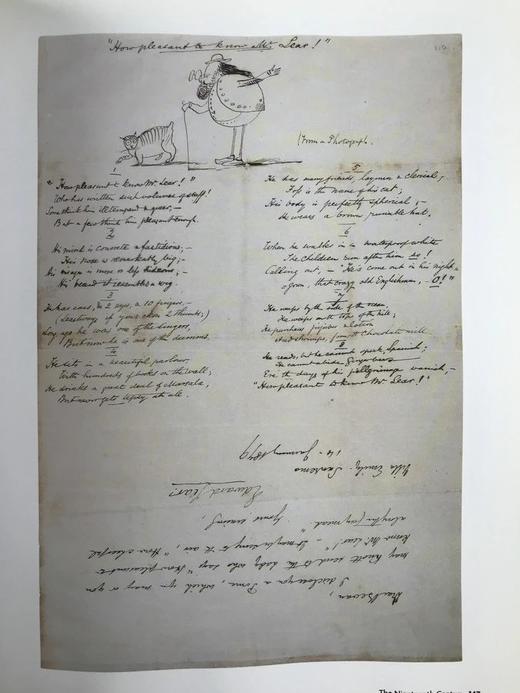 "How pleasant to know Mr. Lear!"
(From a Photograph.
1
"How pleasant to know Mr. Lear!"
Who has written such volumes of stuff!
Some think him ill-tempered & queer, —
But a few think him pleasant enough.
2
His mind is concrete & fastidious, —
His nose is remarkably big; —
His visage is more or less hideous; —
His beard it resembles a wig.
3
He has ears, & 2 eyes, & 10 fingers —
(Leastways if you reckon 2 thumbs;)
Long ago he was one of the singers,
But now he is one of the dumms.
4
He sits in a beautiful parlour,
With hundreds of books on the wall;
He drinks a great deal of Marsala,
But never gets tipsy at all.
5
He has many friends, laymen & clerical,
Foss is the name of his cat;
His body is perfectly spherical; —
He wears a brown runcible hat.
6
When he walks in a waterproof white
The children run after him so!
Calling out, — "He's come out in his night-
gown, that crazy old Englishman, — O!"
7
He weeps by the side of the ocean,
He weeps on the top of the hill;
He purchases lotion
And shrimps from Chocolate mill
8
He reads, but he cannot speak, Spanish;
He cannot abide Ginger beer
Ere the days of his pilgrimage vanish, —
"How pleasant to know Mr Lear!"
Dear Bevan,
I disclose you a Pome, which you may or you
may knott send to the lady who says "How pleasant to
know Mr Lear!" — It may be sung to the air, "How cheerful
along the gay mead."
Yours
Edward Lear.
Villa Emily. Sanremo
14. January 1879
The Nineteenth Century